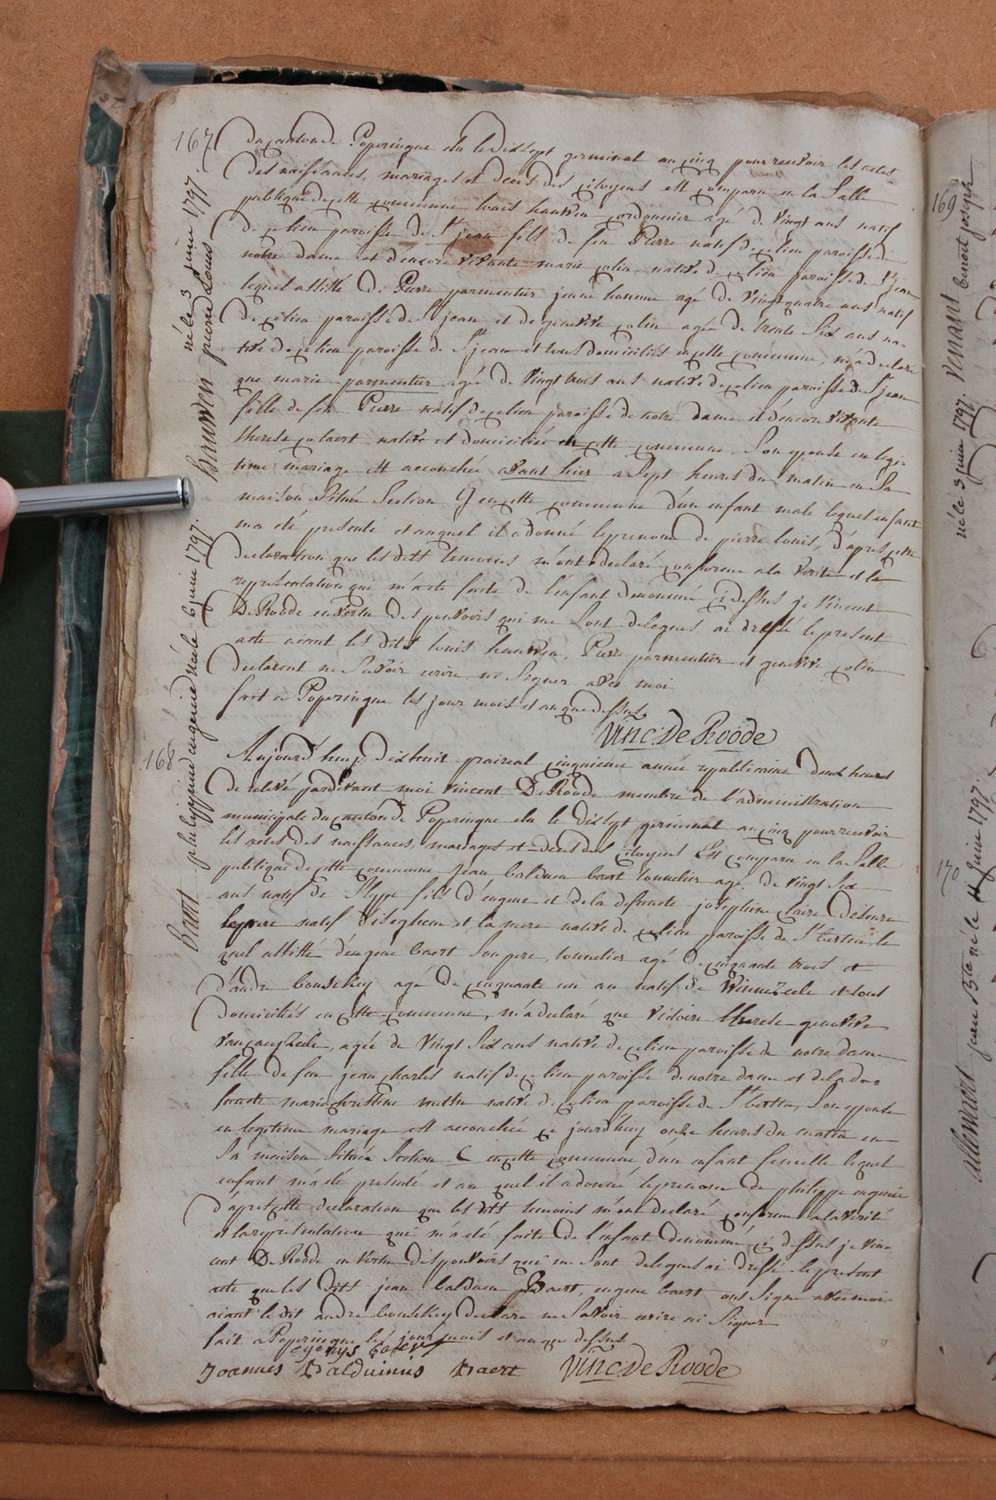 167
du canton de Poperingue elu le dixsept germinal an cinq pour recevoir les actes
des naissances, mariages et deces des citoyens est comparu en la Salle
publique de cette commune louis hauwen cordonnier agé de vingt ans natif
de ce lieu paroisse de St jean fils de feu Pierre natif de ce lieu paroisse de
notre dame et d'encore vivante marie colin native de ce lieu paroisse de St jean
lequel assisté de Pierre parmentier jeune homme agé de vingt quatre ans natif
de ce lieu paroisse de St jean et de genevive colin agée de trente six ans na-
tive de ce lieu paroisse de St jean et tous domiciliés en cette commune, m'a declaré
que marie parmentier agée de vingt trois ans native de ce lieu paroisse de St jean
fille de feu Pierre natif de ce lieu paroisse de notre dame et d'encore vivante
therese colaert native et domiciliée en cette commune, Son epouse en legi-
time mariage est accouchée avant hier a Sept heures du matin en Sa
maison Située Section G en cette commune d'un enfant male lequel enfant
m'a eté presenté et auquel il a donné le prenom de pierre louis, d'apres cette
declaration que les dits temoins m'ont declaré conforme a la verité et la
representation que m'a eté faite de l'enfant denommé ci dessus je vincent
De Roode en vertu des pouvoirs qui me Sont delegués ai dressé le present
acte aiant les dits louis hauwen, Pierre parmentier et genevive colin
declarent ne Savoir ecrire ni Signer avec moi
fait a Poperingue les jour mois et an que dessus
Vinc. De Roode
Hauwen pierre Louis
né le 3 juin 1797.
168
Aujourd'huy dixhuit praireal cinquieme année republicaine deux heures
de relevé pardevant moi vincent De Roode membre de l'administration
municipale du canton de Poperingue elu le dixsept germinal an cinq pour recevoir
les actes des naissances, mariages et deces des citoyens Est comparu en la Salle
publique de cette commune jean balduin baert tonnelier agé de vingt Six
ans natif de fils d'eugene et de la defuncte josephine claire
le pere natif d'Iseghem et la mere native de ce lieu paroisse de St bertin le
quel assisté d'eugene baert Son pere, tonnelier agé de cinquante trois et
d'andre bouseKey agé de cinquante un an natif de Winnezeele et tous
domiciliés en cette commune, m'a declaré que victoire therese genevive
agée de vingt Six ans native de ce lieu paroisse de notre dame
fille de feu jean charles natif de ce lieu paroisse de notre dame et de la de-
functe marie native de ce lieu paroisse de St bertin, Son epouse
en legitime mariage est accouchée ce jourd'huy onze heures du matin en
Sa maison Située Section C en cette commune d'un enfant femelle lequel
enfant m'a eté presenté et au quel il a donnée le prenom de philippe eugenie
d'apres cette declaration que les dits temoins m'ont declaré conforme a la verité
et la representation que m'a eté faite de l'enfant denommé ci dessus je vin-
cent De Roode en vertu des pouvoirs qui me Sont delegués ai dressé le present
acte que les dits jean balduin Baert, eugene baert ont Signé avec moi
aiant le dit andre bouseKey declare ne Savoir ecrire ni Signer
fait a Poperingue les jour mois et an que dessus
Joannes Balduinus Baert
Vinc. De Roode
Baert philippine eugenie née le 6 juin 1797.
169
Venant benoit joseph
né le 3 juin 1797.
170
Allemeert jean Bte né le 4 juin 1797